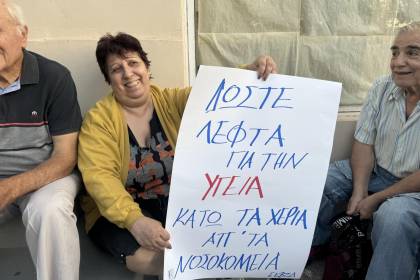 ΔΩΣΤΕ
ΛΕΦΤΑ
ΓΙΑ ΤΗΝ
ΥΓΕΙΑ
ΚΑΤΩ ΤΑ ΧΕΡΙΑ
ΑΠ' ΤΑ
ΝΟΣΟΚΟΜΕΙΑ